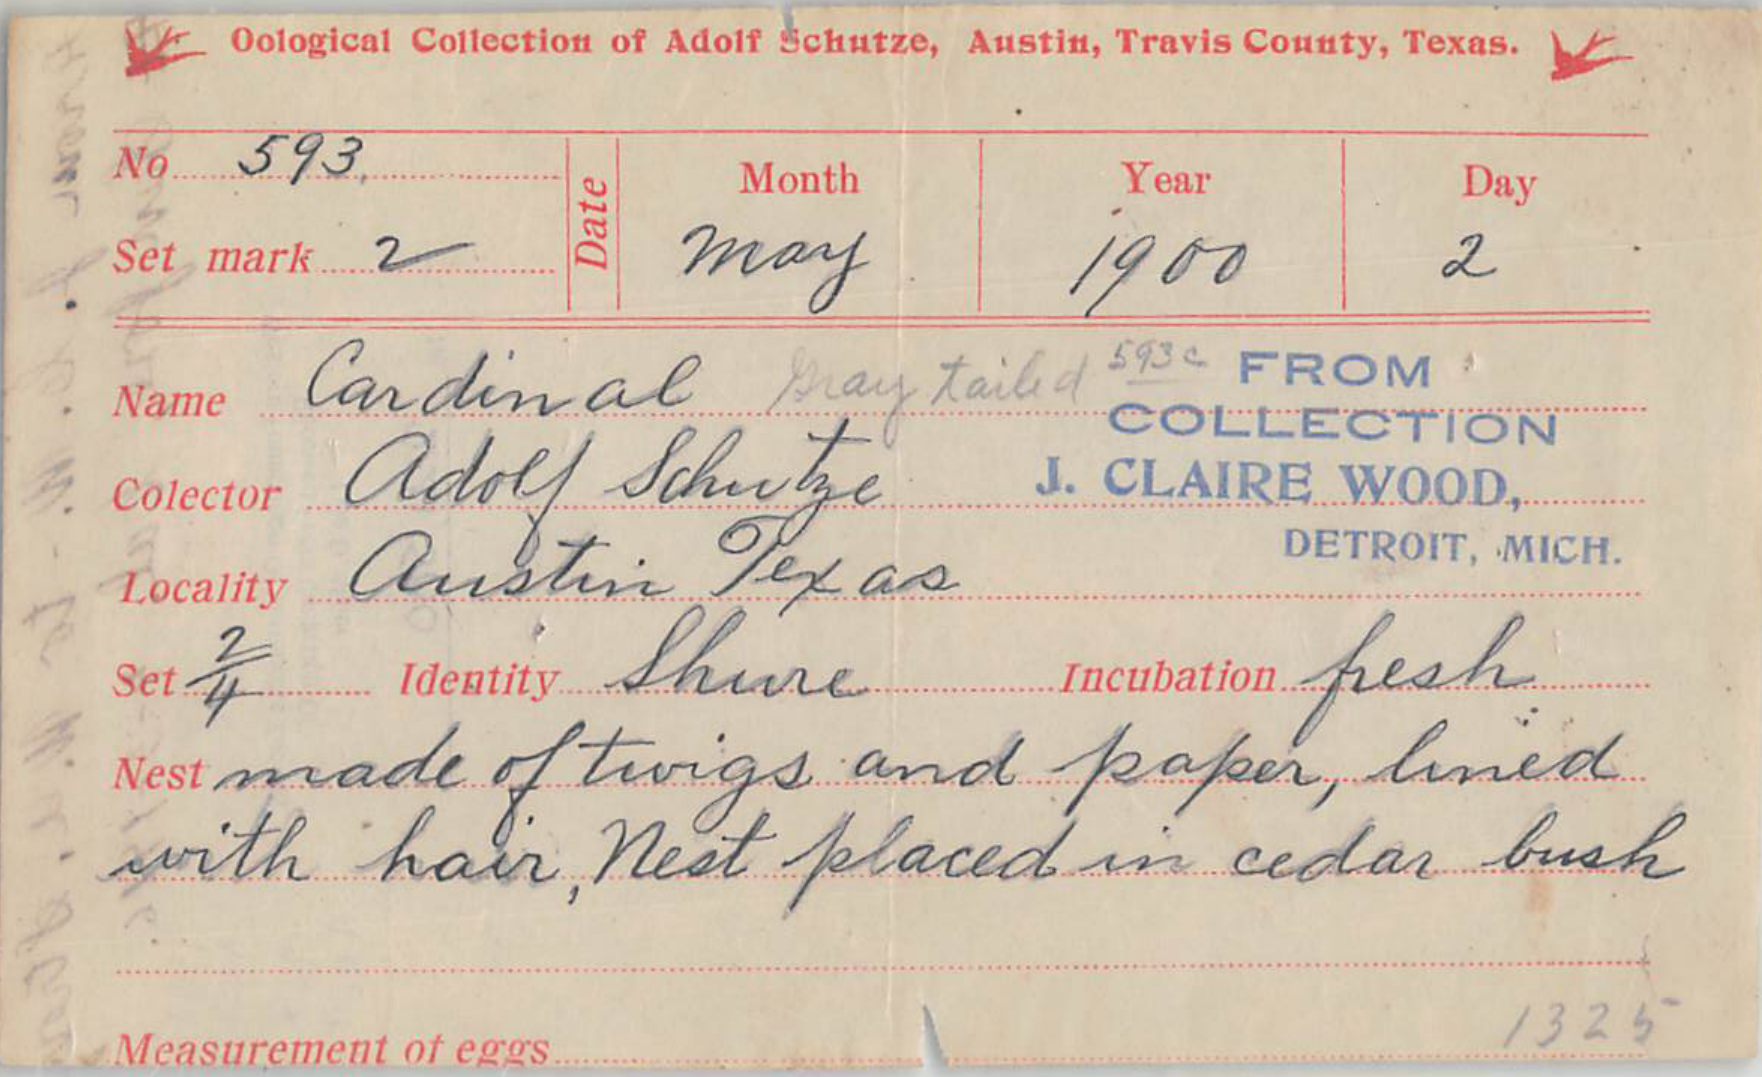 Oological Collection of Adolf Schutze, Austin, Travis County, Texas.
No 593.
Set mark 2
Date
Month Year Day
May 1900 2
Name Cardinal Gray tailed 593c
FROM
COLLECTION
J. CLAIRE WOOD,
DETROIT, MICH.
Colector Adolf Schutze
Locality Austin Texas
Set 2/4 Identity Shure Incubation fresh
Nest made of twigs and paper, lined
with hair, Nest placed in cedar bush
Measurement of eggs
1325